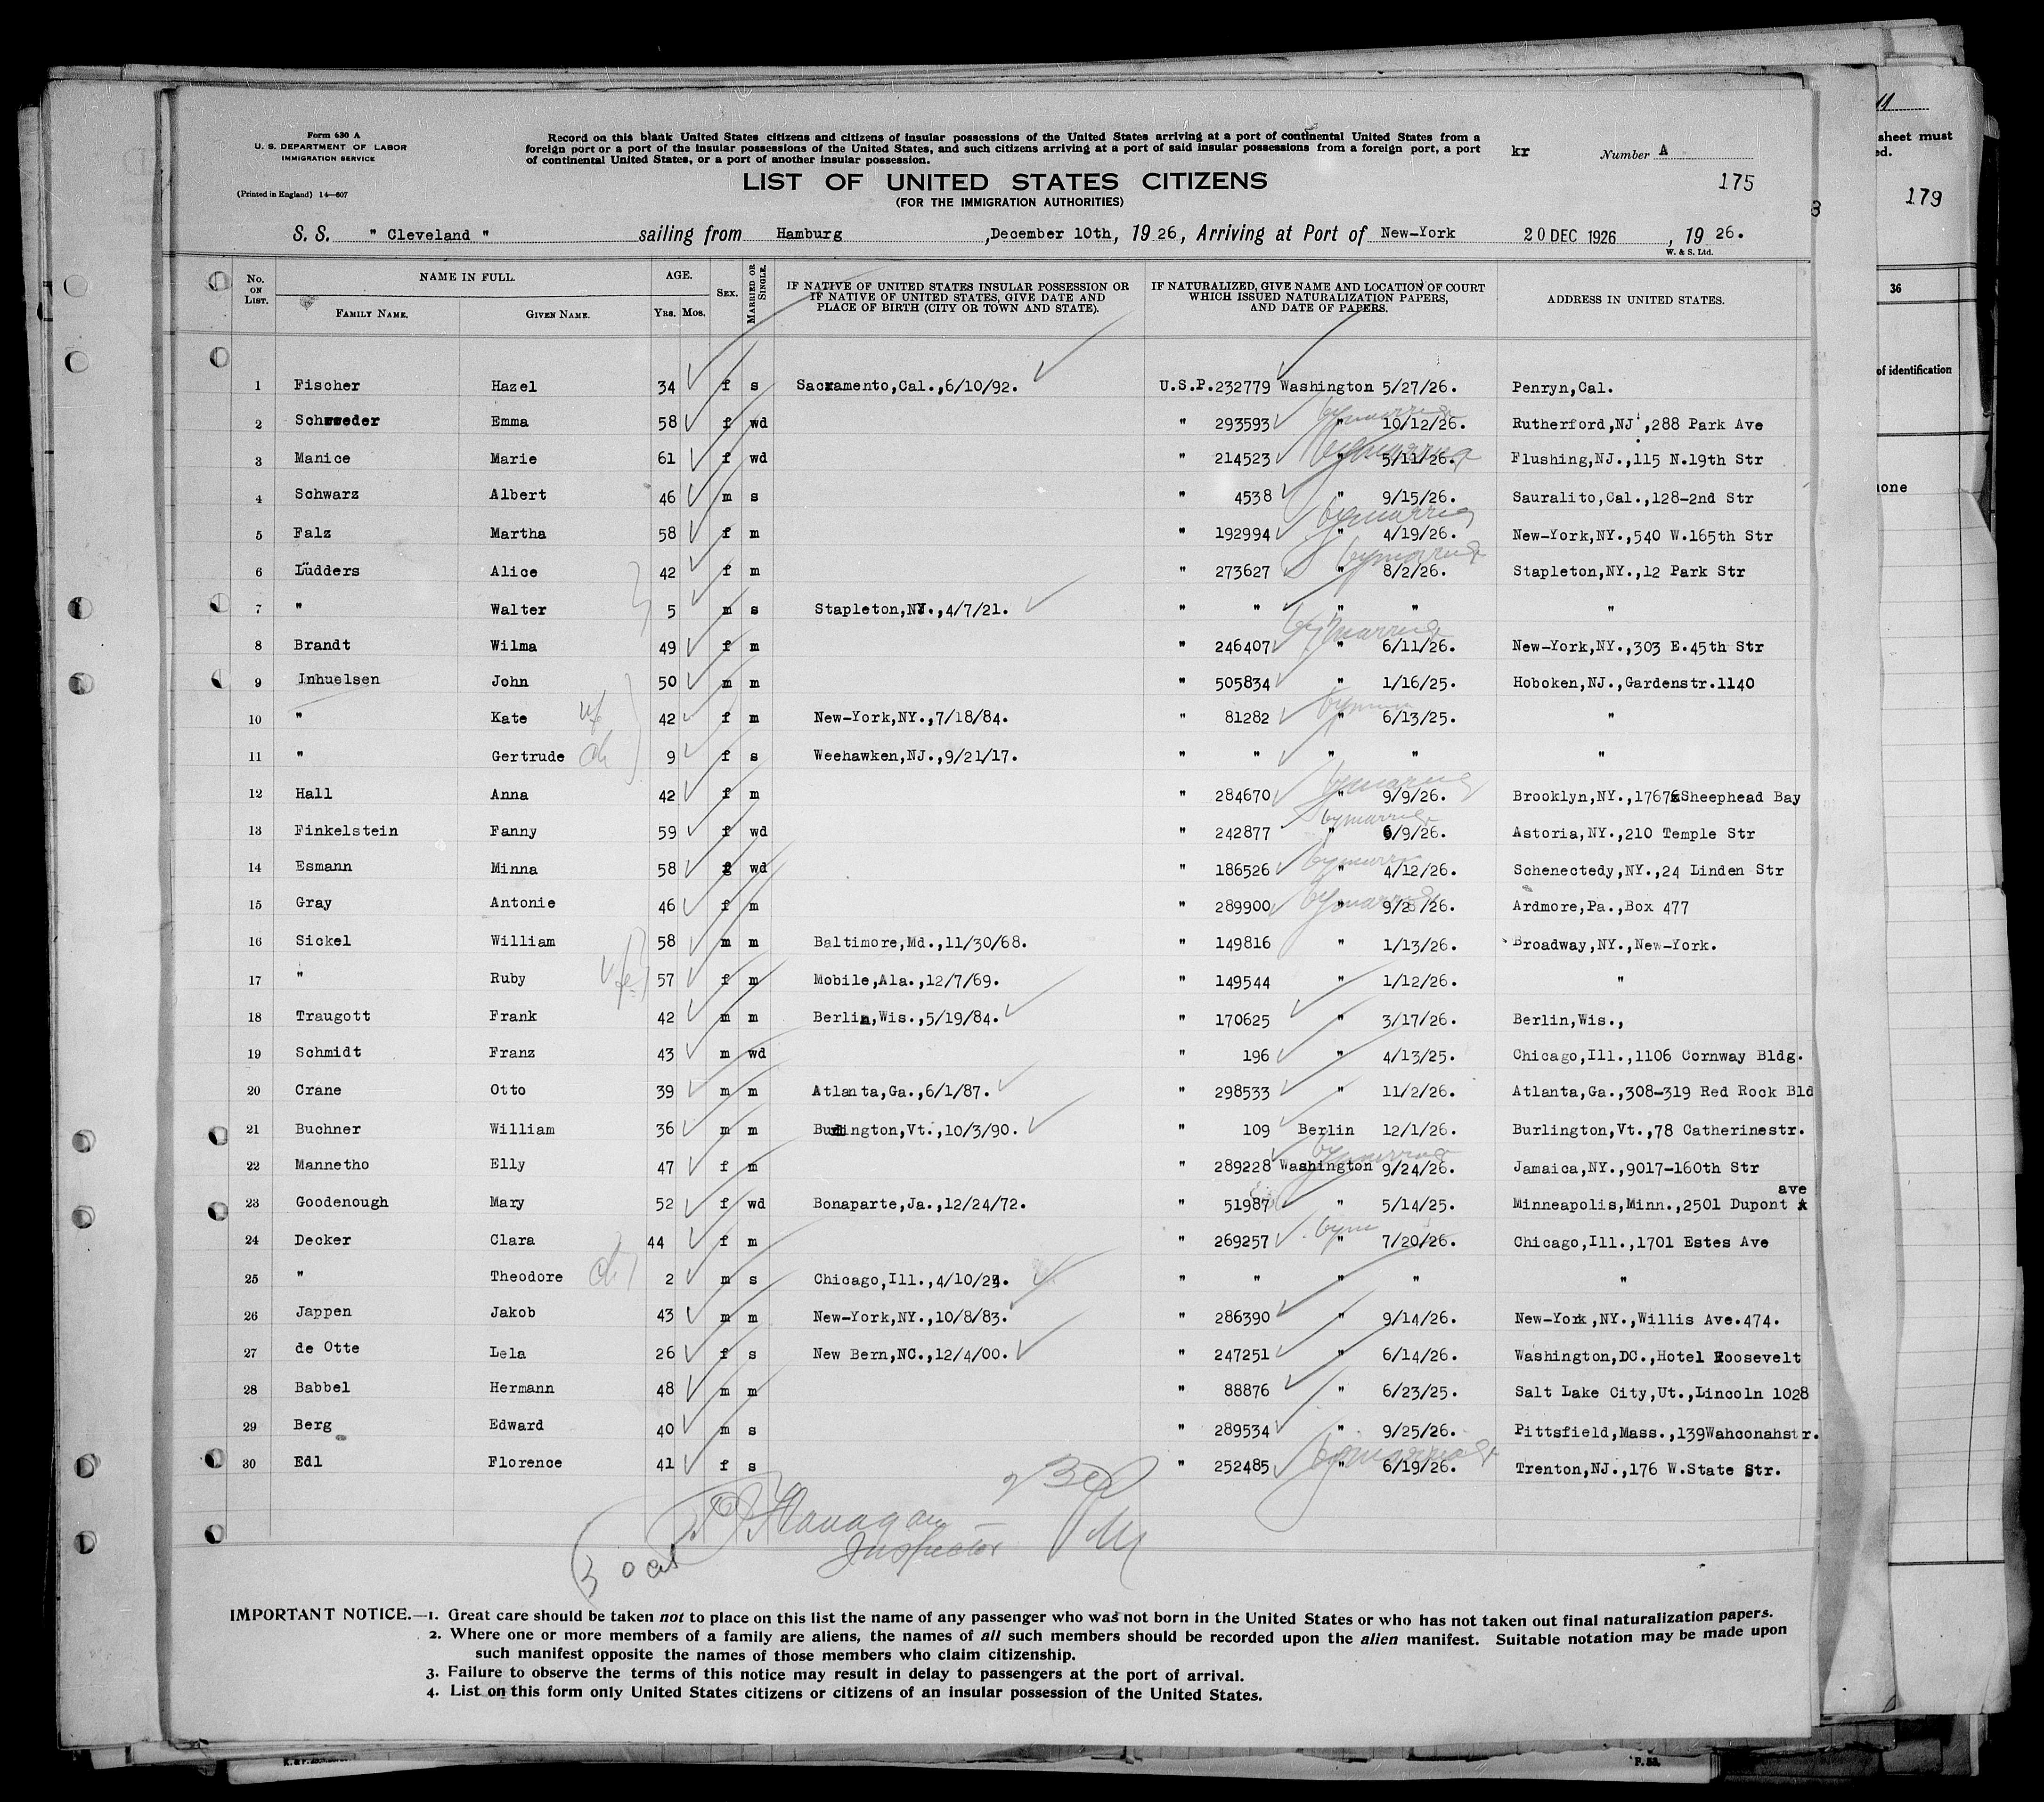 11
sheet must
ed.
179
36
of identification
ione
Form 630 A
U. S. DEPARTMENT OF LABOR
IMMIGRATION SERVICE
(Printed in England) 14—607
Record on this blank United States citizens and citizens of insular possessions of the United States arriving at a port of continental United States from a
foreign port or a port of the insular possessions of the United States, and such citizens arriving at a port of said insular possessions from a foreign port, a port
of continental United States, or a port of another insular possession.
kr Number A
LIST OF UNITED STATES CITIZENS
175
(FOR THE IMMIGRATION AUTHORITIES)
S. S. " Cleveland " sailing from Hamburg ,December 10th, 1926, Arriving at Port of New-York 20 DEC 1926 , 19 26.
W. & S. Ltd.
No. ON LIST. NAME IN FULL. FAMILY NAME. GIVEN NAME. AGE. YRS. MOS. SEX. MARRIED OR SINGLE. IF NATIVE OF UNITED STATES INSULAR POSSESSION OR IF NATIVE OF UNITED STATES, GIVE DATE AND PLACE OF BIRTH (CITY OR TOWN AND STATE). IF NATURALIZED, GIVE NAME AND LOCATION OF COURT WHICH ISSUED NATURALIZATION PAPERS, AND DATE OF PAPERS. ADDRESS IN UNITED STATES.
1 Fischer Hazel 34 f s Sacramento,Cal.,6/10/92. U.S.P.232779 Washington 5/27/26. Penryn,Cal.
2 Schroeder Emma 58 f wd " 293593 by marriage " 10/12/26. Rutherford,NJ',288 Park Ave
3 Manice Marie 61 f wd " 214523 by marriage " 5/11/26. Flushing,NJ.,115 N.19th Str
4 Schwarz Albert 46 m s " 4538 " 9/15/26. Sauralito,Cal.,128-2nd Str
5 Falz Martha 58 f m " 192994 by marriage " 4/19/26. New-York,NY.,540 W.165th Str
6 Lüdders Alice 42 f m " 273627 by marriage " 8/2/26. Stapleton,NY.,12 Park Str
7 " Walter 5 m s Stapleton,NY.,4/7/21. " " " " "
8 Brandt Wilma 49 f m " 246407 by marriage " 6/11/26. New-York,NY.,303 E.45th Str
9 Inhuelsen John 50 m m " 505834 " 1/16/25. Hoboken,NJ.,Gardenstr.1140
10 " Kate wf 42 f m New-York,NY.,7/18/84. " 81282 " 6/13/25. "
11 " Gertrude ch 9 f s Weehawken,NJ.,9/21/17. " " " " "
12 Hall Anna 42 f m " 284670 by marriage " 9/9/26. Brooklyn,NY.,1767 Sheephead Bay
13 Finkelstein Fanny 59 f wd " 242877 by marriage " 6/9/26. Astoria,NY.,210 Temple Str
14 Esmann Minna 58 f wd " 186526 by marr " 4/12/26. Schenectedy,NY.,24 Linden Str
15 Gray Antonie 46 f m " 289900 by marriage 9/28/26. Ardmore,Pa.,Box 477
16 Sickel William 58 m m Baltimore,Md.,11/30/68. " 149816 " 1/13/26. Broadway,NY.,New-York.
17 " Ruby wf 57 f m Mobile,Ala.,12/7/69. " 149544 " 1/12/26. "
18 Traugott Frank 42 m m Berlin,Wis.,5/19/84. " 170625 " 3/17/26. Berlin,Wis.,
19 Schmidt Franz 43 m wd " 196 " 4/13/25. Chicago,Ill.,1106 Cornway Bldg.
20 Crane Otto 39 m m Atlanta,Ga.,6/1/87. " 298533 " 11/2/26. Atlanta,Ga.,308-319 Red Rock Bld
21 Buchner William 36 m m Burlington,Vt.,10/3/90. " 109 Berlin 12/1/26. Burlington,Vt.,78 Catherinestr.
22 Mannetho Elly 47 f m " 289228 Washington by marriage 9/24/26. Jamaica,NY.,9017-160th Str
23 Goodenough Mary 52 f wd Bonaparte,Ja.,12/24/72. " 51987 " 5/14/25. Minneapolis,Minn.,2501 Dupont ave
24 Decker Clara 44 f m " 269257 by m " 7/20/26. Chicago,Ill.,1701 Estes Ave
25 " Theodore ch 2 m s Chicago,Ill.,4/10/24. " " " " "
26 Jappen Jakob 43 m m New-York,NY.,10/8/83. " 286390 " 9/14/26. New-York,NY.,Willis Ave.474.
27 de Otte Lela 26 f s New Bern,NC.,12/4/00. " 247251 " 6/14/26. Washington,DC.,Hotel Roosevelt
28 Babbel Hermann 48 m m " 88876 " 6/23/25. Salt Lake City,Ut.,Lincoln 1028
29 Berg Edward 40 m s " 289534 " 9/25/26. Pittsfield,Mass.,139Wahconahstr.
30 Edl Florence 41 f s " 252485 by marriage " 6/19/26. Trenton,NJ.,176 W.State Str.
Flanagan
Inspector
IMPORTANT NOTICE.—1. Great care should be taken not to place on this list the name of any passenger who was not born in the United States or who has not taken out final naturalization papers.
2. Where one or more members of a family are aliens, the names of all such members should be recorded upon the alien manifest. Suitable notation may be made upon
such manifest opposite the names of those members who claim citizenship.
3. Failure to observe the terms of this notice may result in delay to passengers at the port of arrival.
4. List on this form only United States citizens or citizens of an insular possession of the United States.